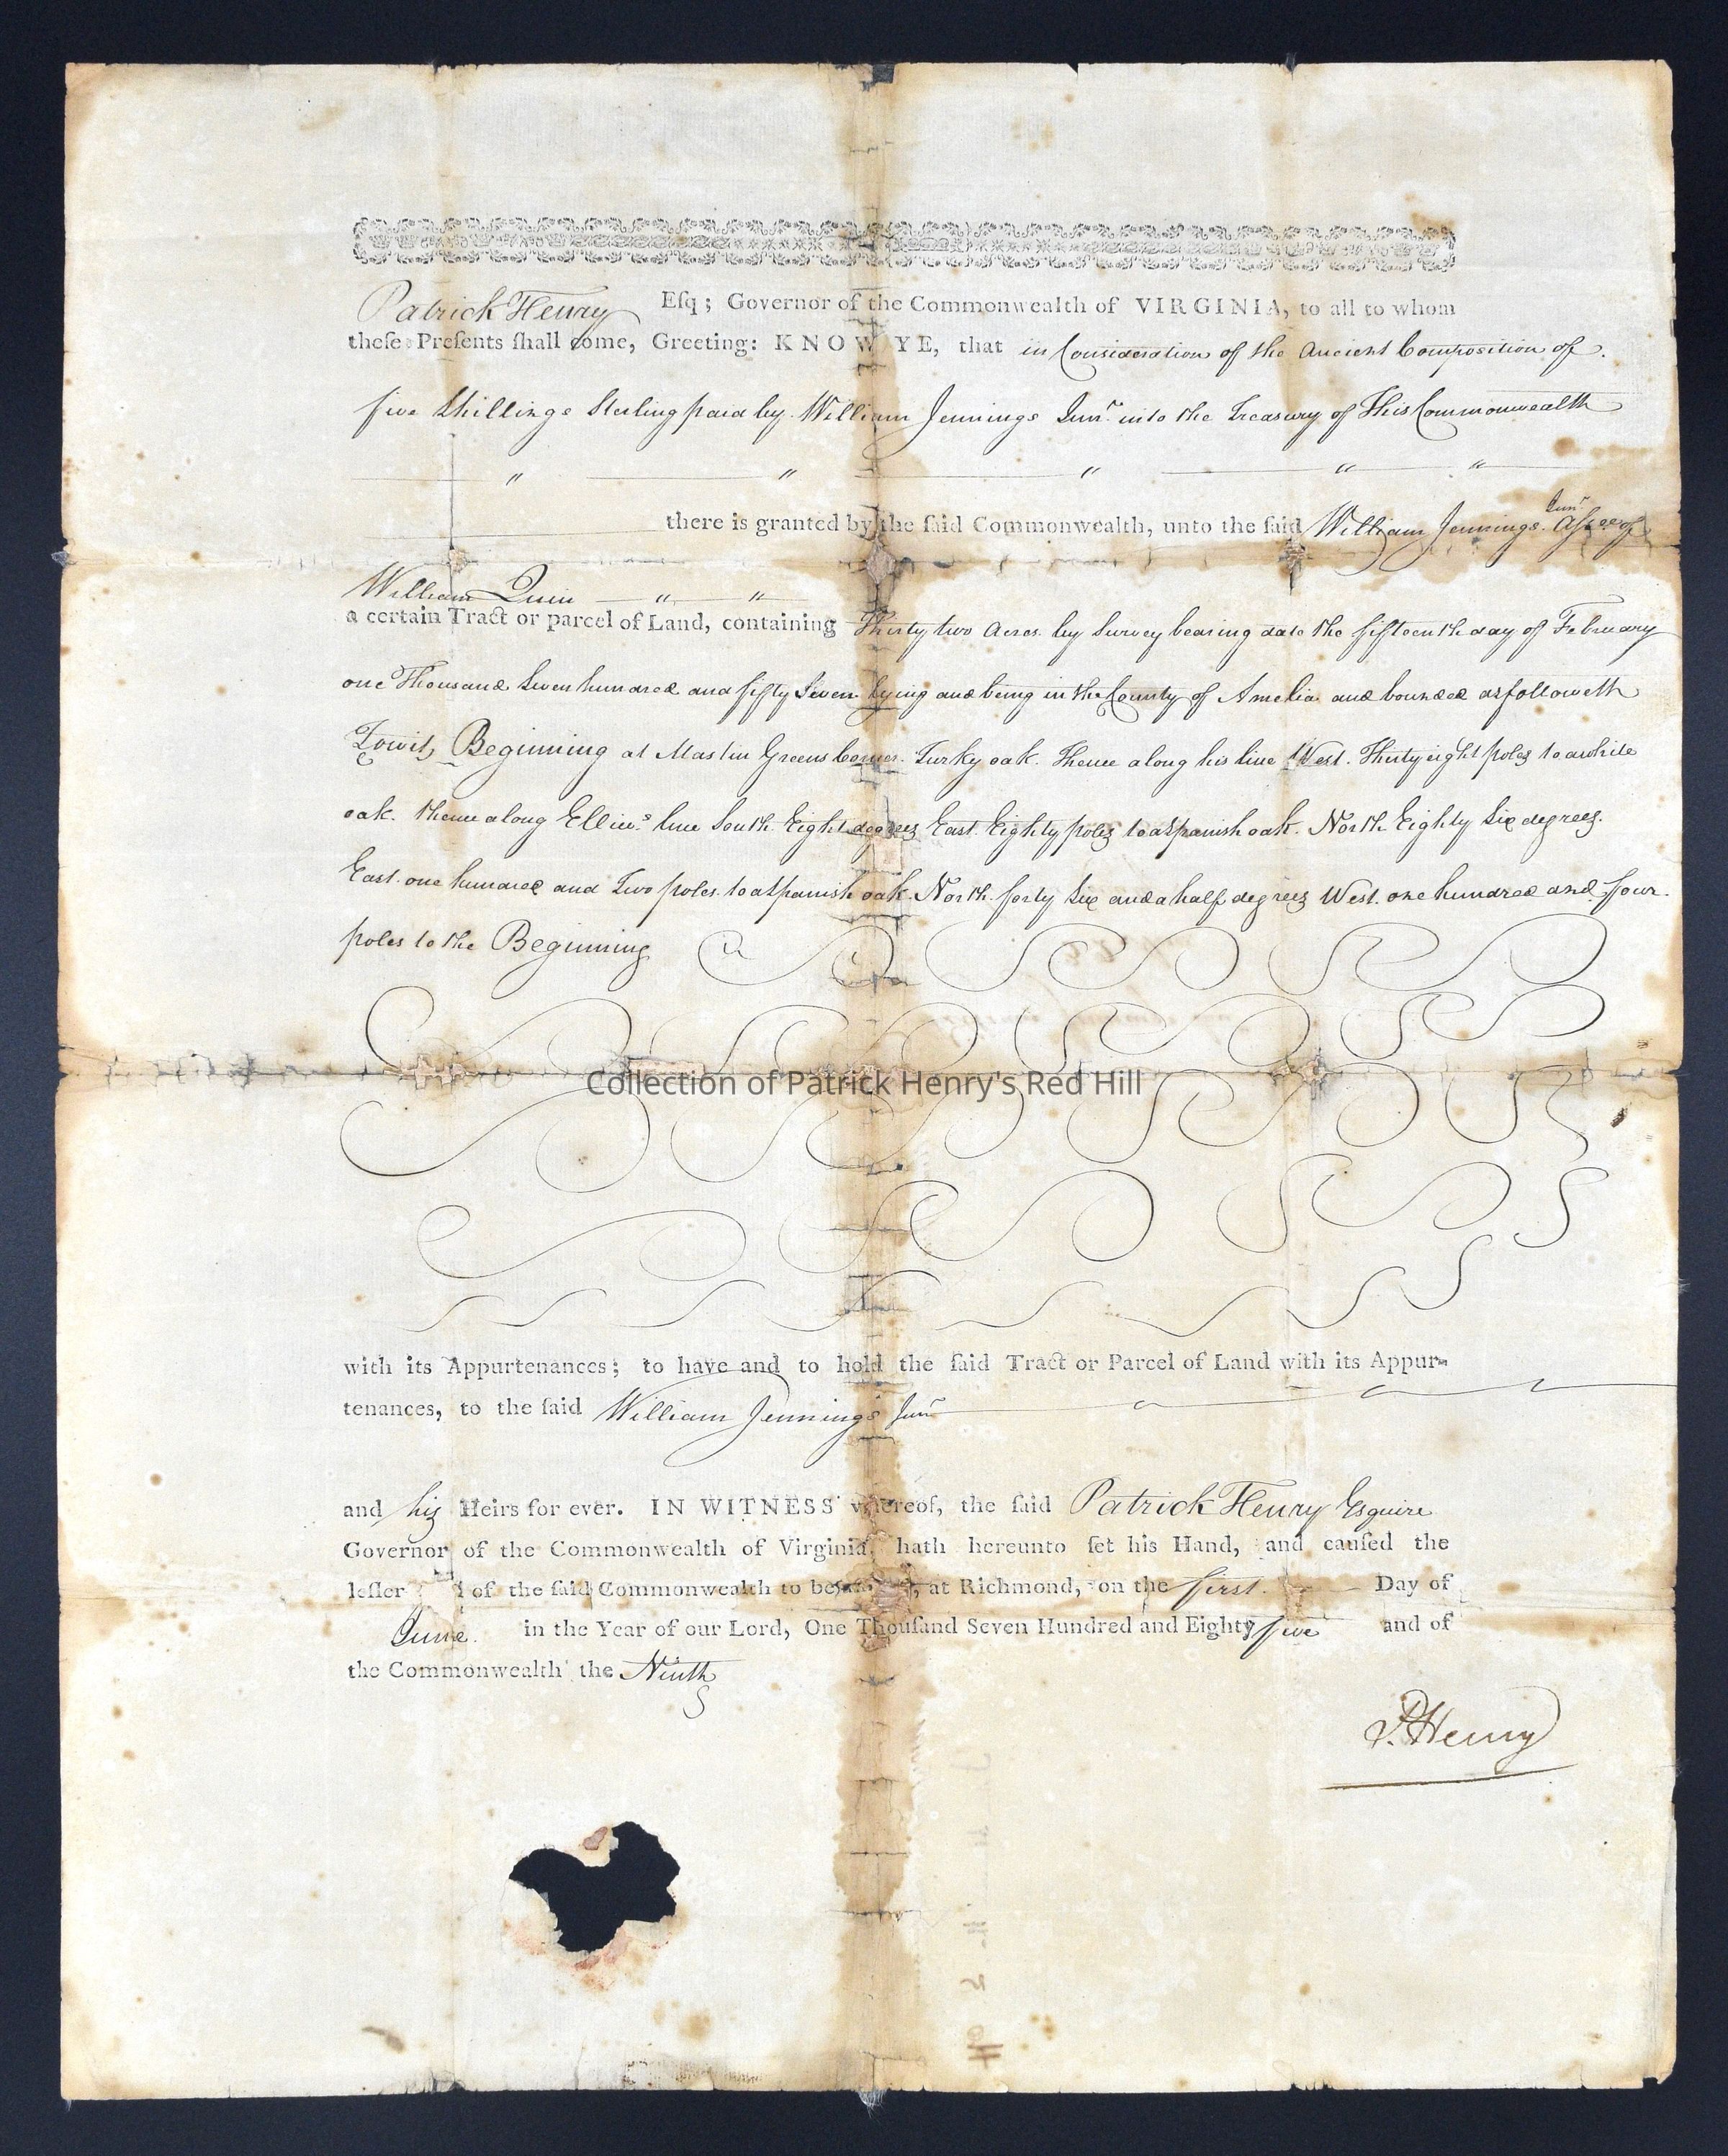 Patrick Henry Eſq; Governor of the Commonwealth of VIRGINIA, to all to whom
theſe Preſents ſhall come, Greeting: KNOW YE, that in Consideration of the Ancient Composition of
five Shillings Sterling paid by William Jennings Junr. into the Treasury of This Commonwealth
there is granted by the ſaid Commonwealth, unto the ſaid William Jennings Junr. Assee of
William Quin
a certain Tract or parcel of Land, containing Thirty two Acres by Survey bearing date the fifteenth day of February
one Thousand Seven hundred and fifty Seven lying and being in the County of Amelia and bounded as followeth
Towit, Beginning at Mastin Greens Corner Turky oak. Thence along his line West. Thirty eight poles to a white
oak. thence along line South Eight degrees East Eighty poles to a Spanish oak. North Eighty Six degrees.
East one hundred and Two poles to a Spanish oak North forty Six and a half degrees West one hundred and four
poles to the Beginning
Collection of Patrick Henry's Red Hill
with its Appurtenances; to have and to hold the ſaid Tract or Parcel of Land with its Appur-
tenances, to the ſaid William Jennings Junr
and his Heirs for ever. IN WITNESS whereof, the ſaid Patrick Henry Esquire
Governor of the Commonwealth of Virginia, hath hereunto ſet his Hand, and cauſed the
leſſer of the ſaid Commonwealth to be at Richmond, on the first Day of
June in the Year of our Lord, One Thouſand Seven Hundred and Eighty five and of
the Commonwealth the Ninth
P. Henry